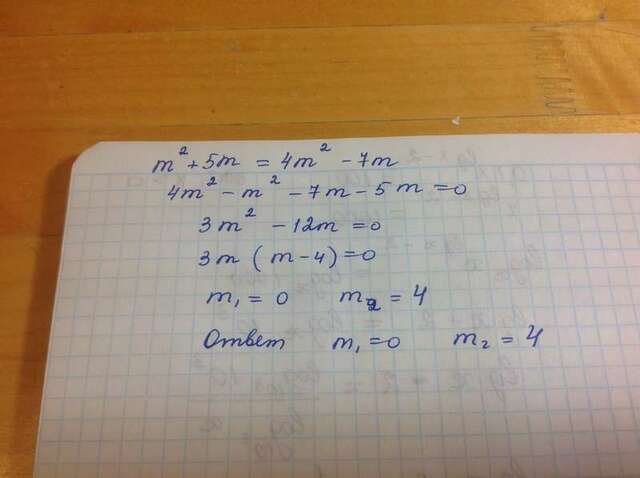 m² + 5m = 4m² - 7m
4m² - m² - 7m - 5m = 0
3m² - 12m = 0
3m (m - 4) = 0
m₁ = 0 m₂ = 4
Ответ m₁ = 0 m₂ = 4